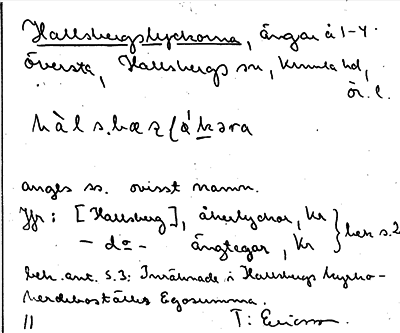 Hallsbergslyckorna, ängar å 1-4
Översta, Hallsbergs sn, Kumla hd,
Ör. l.
anges ss. ovisst namn.
Jfr: [Hallsberg], åkerlyckor, kr
- do - ängtegar, kr } bek s. 2
bek. ant. s. 3: Inräknade i Hallsbergs kyrko-
herdeboställes Egosumma.
T: Ericsson